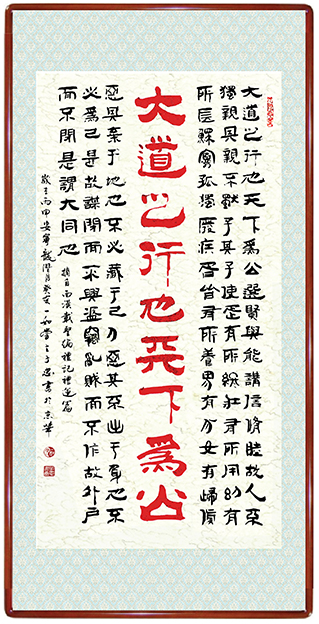 大道之行也天下為公選賢與能講信修睦故人不
獨親其親不獨子其子使老有所終壯有所用幼有
所長鰥寡孤獨廢疾者皆有所養男有分女有歸貨
大道之行也天下為公
惡其棄于地也不必藏于己力惡其不出于身也不
必為己是故謀閉而不興盜竊亂賊而不作故外戶
而不閉是謂大同也
摘自西漢戴聖編禮記禮運篇
丙申 龍潛月癸亥一和堂主 書於京華